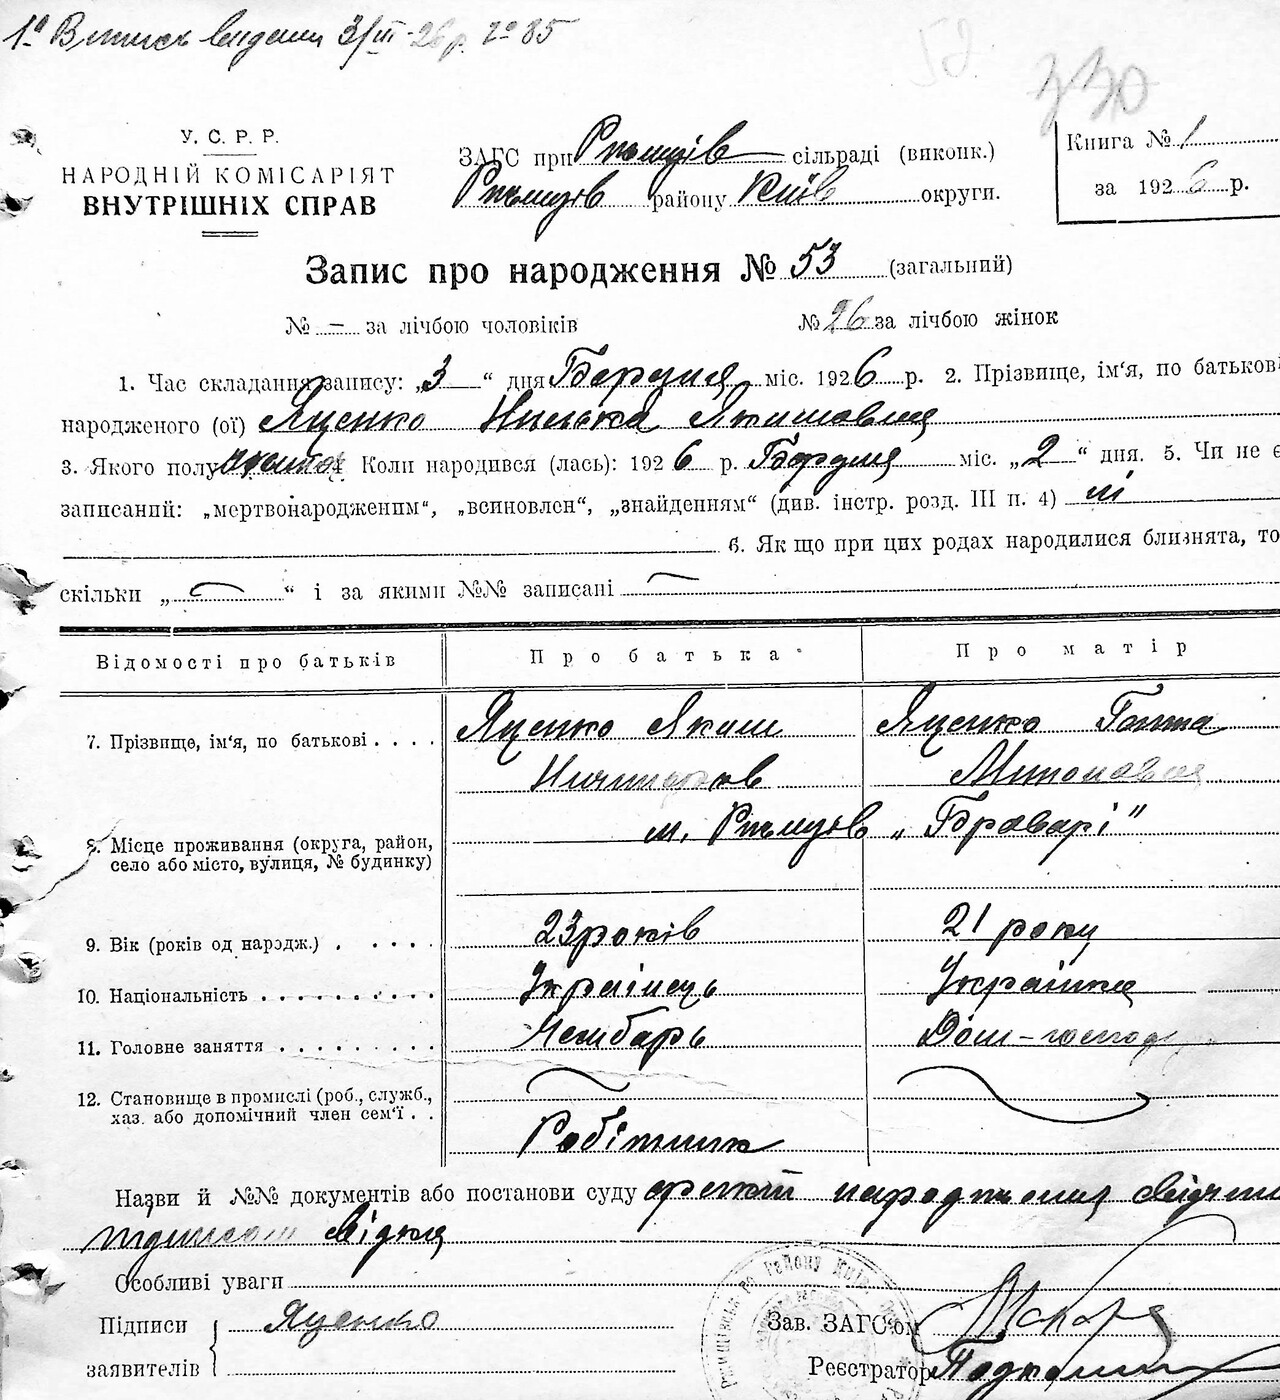 1а Виписъ видани 3/III-26 р. № 85
330
У. С. Р. Р.
НАРОДНІЙ КОМІСАРІЯТ
ВНУТРІШНІХ СПРАВ
ЗАГС при Ржищів сільраді (виконк.)
Ржищів району Київ округи.
Книга № 1
за 1926 р.
Запис про народження № 53 (загальний)
№ – за лічбою чоловіків № 26 за лічбою жінок
1. Час складання запису: „3“ дня Березня міс. 1926 р. 2. Прізвище, ім'я, по батькові
народженого (ої) Яценко Якимовна
3. Якого полу Коли народився (лась): 1926 р. Березня міс. „2“ дня. 5. Чи не є
записаний: „мертвонародженим“, „всиновлен“, „знайденням“ (див. інстр. розд. III п. 4) ні
6. Як що при цих родах народилися близнята, то
скільки „—“ і за якими №№ записані —
Відомості про батьків Про батька Про матір
7. Прізвище, ім'я, по батькові Яценко Яким Яценко Ганна
Ничипоров Мироновна
8. Місце проживання (округа, район, село або місто, вулиця, № будинку) м. Ржищів „Броварі"
9. Вік (років од народж.) 23 років 21 року
10. Національність Українець Українка
11. Головне заняття Чембарь Дом-господ
12. Становище в промислі (роб., служб., хаз. або допомічний член сем'ї
Робітник
Назви й №№ документів або постанови суду народження
свідків
Особливі уваги
Підписи заявителів Яценко
Зав. ЗАГС'ом
Реєстратор